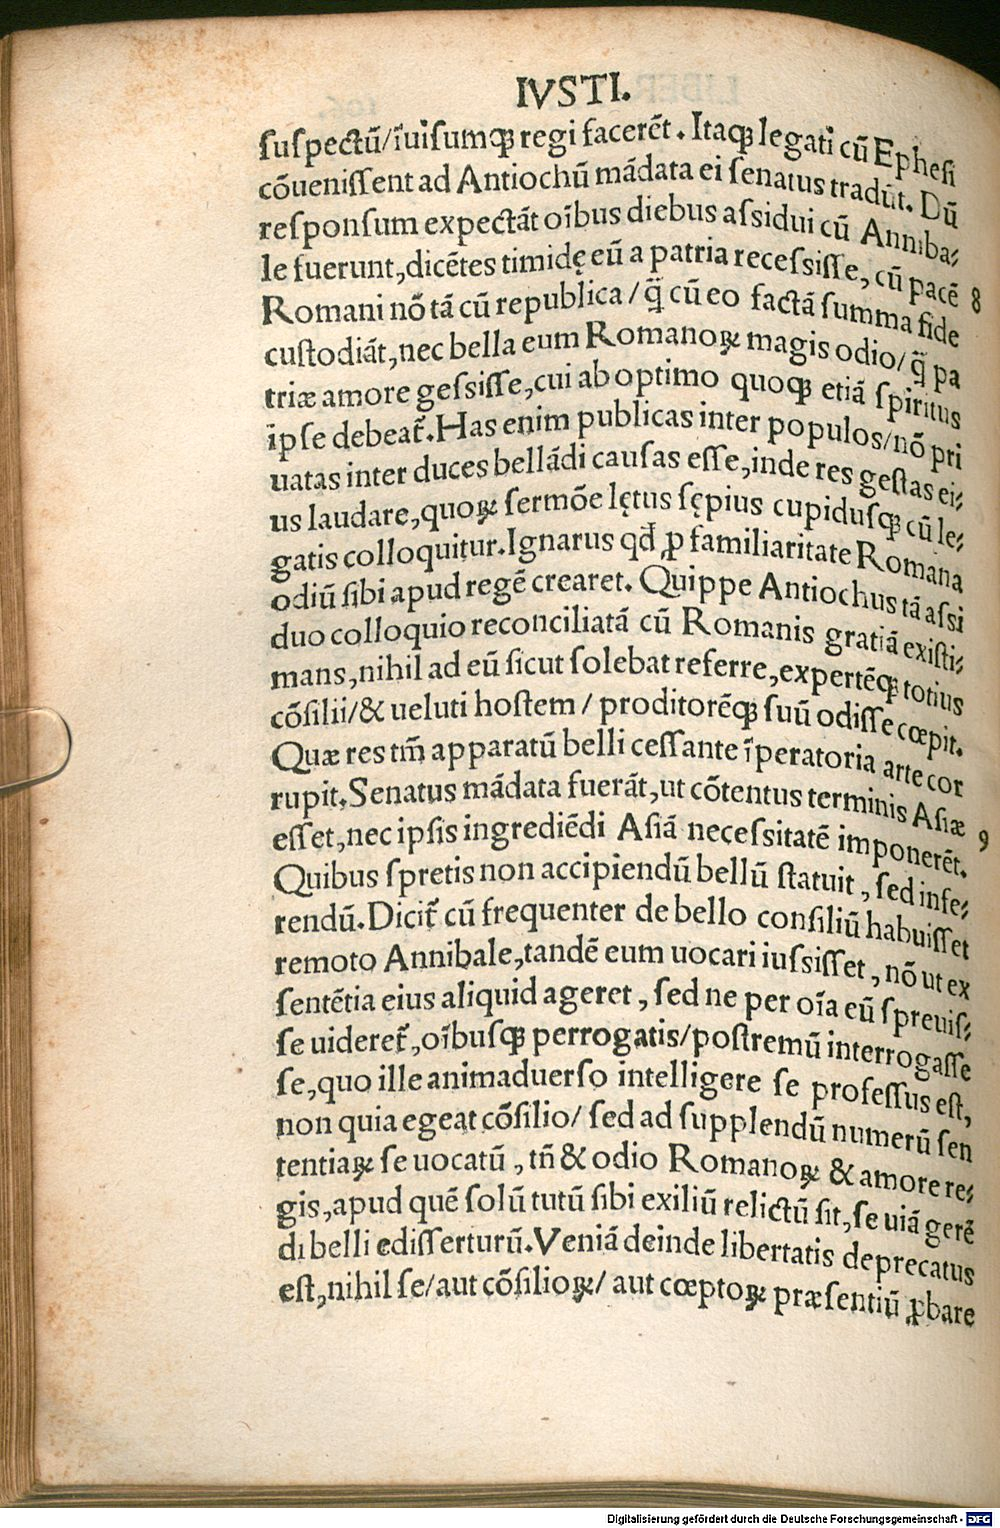 IVSTI.
suspectū/īuisumqꝫ regi facerēt . Itaqꝫ legati cū Ephesi
cōuenissent ad Antiochū mādata ei senatus tradūt. Dū
responsum expectāt oībus diebus assidui cū Anniba⸗
le fuerunt,dicētes timidę eū a patria recessisse, cū pacē 8
Romani nō tā cū republica / q̄ cū eo factā summa fide
custodiāt,nec bella eum Romanoꝝ magis odio/ q̄ pa
triæ amore gessisse,cui ab optimo quoqꝫ etiā spiritus
ipse debeat̄.Has enim publicas inter populos/nō pri
uatas inter duces bellādi causas esse,inde res gestas ei⸗
us laudare,quoꝝ sermōe lętus sępius cupidusqꝫ cū le⸗
gatis colloquitur.Ignarus qđ ꝓ familiaritate Romana
odiū sibi apud regē crearet. Quippe Antiochus tā assi
duo colloquio reconciliatā cū Romanis gratiā existi⸗
mans,nihil ad eū sicut solebat referre,expertēqꝫ totius
cōsilii/& ueluti hostem / proditorēqꝫ suū odisse cœpit.
Quæ res tm̄ apparatū belli cessante īperatoria arte cor
rupit.Senatus mādata fuerāt,ut cōtentus terminis Asiæ
esset,nec ipsis ingrediēdi Asiā necessitatē imponerēt. 9
Quibus spretis non accipiendū bellū statuit , sed infe⸗
rendū.Dicit̄ cū frequenter de bello consiliū habuisset
remoto Annibale,tandē eum uocari iussisset , nō ut ex
sentētia eius aliquid ageret , sed ne per oīa eū spreuis⸗
se uideret̄,oībusqꝫ perrogatis/postremū interrogasse
se,quo ille animaduerso intelligere se professus est,
non quia egeat cōsilio/ sed ad supplendū numerū sen
tentiaꝝ se uocatū , tn̄ & odio Romanoꝝ & amore re⸗
gis,apud quē solū tutū sibi exiliū relictū sit,se uiā gerē
di belli edisserturū.Veniā deinde libertatis deprecatus
est,nihil se/aut cōsilioꝝ/ aut cœptoꝝ præsentiū ꝓbare
Digitalisierung gefördert durch die Deutsche Forschungsgemeinschaft - DFG